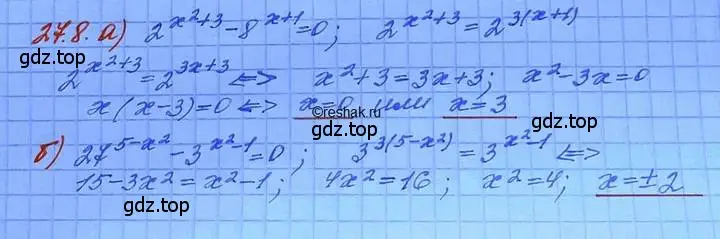 27.8. а) 2^{x²+3} - 8^{x+1} = 0; 2^{x²+3} = 2^{3(x+1)}
gdz.top gdz.top
2^{x²+3} = 2^{3x+3} ⟺ x²+3 = 3x+3; x²-3x=0
x(x-3)=0 ⟺ x=0 или x=3
©reshak.ru
gdz.top gdz.top
б) 27^{5-x²} - 3^{x²-1} = 0; 3^{3(5-x²)} = 3^{x²-1} ⟺
15-3x² = x²-1; 4x²=16; x²=4; x=±2
gdz.top gdz.top